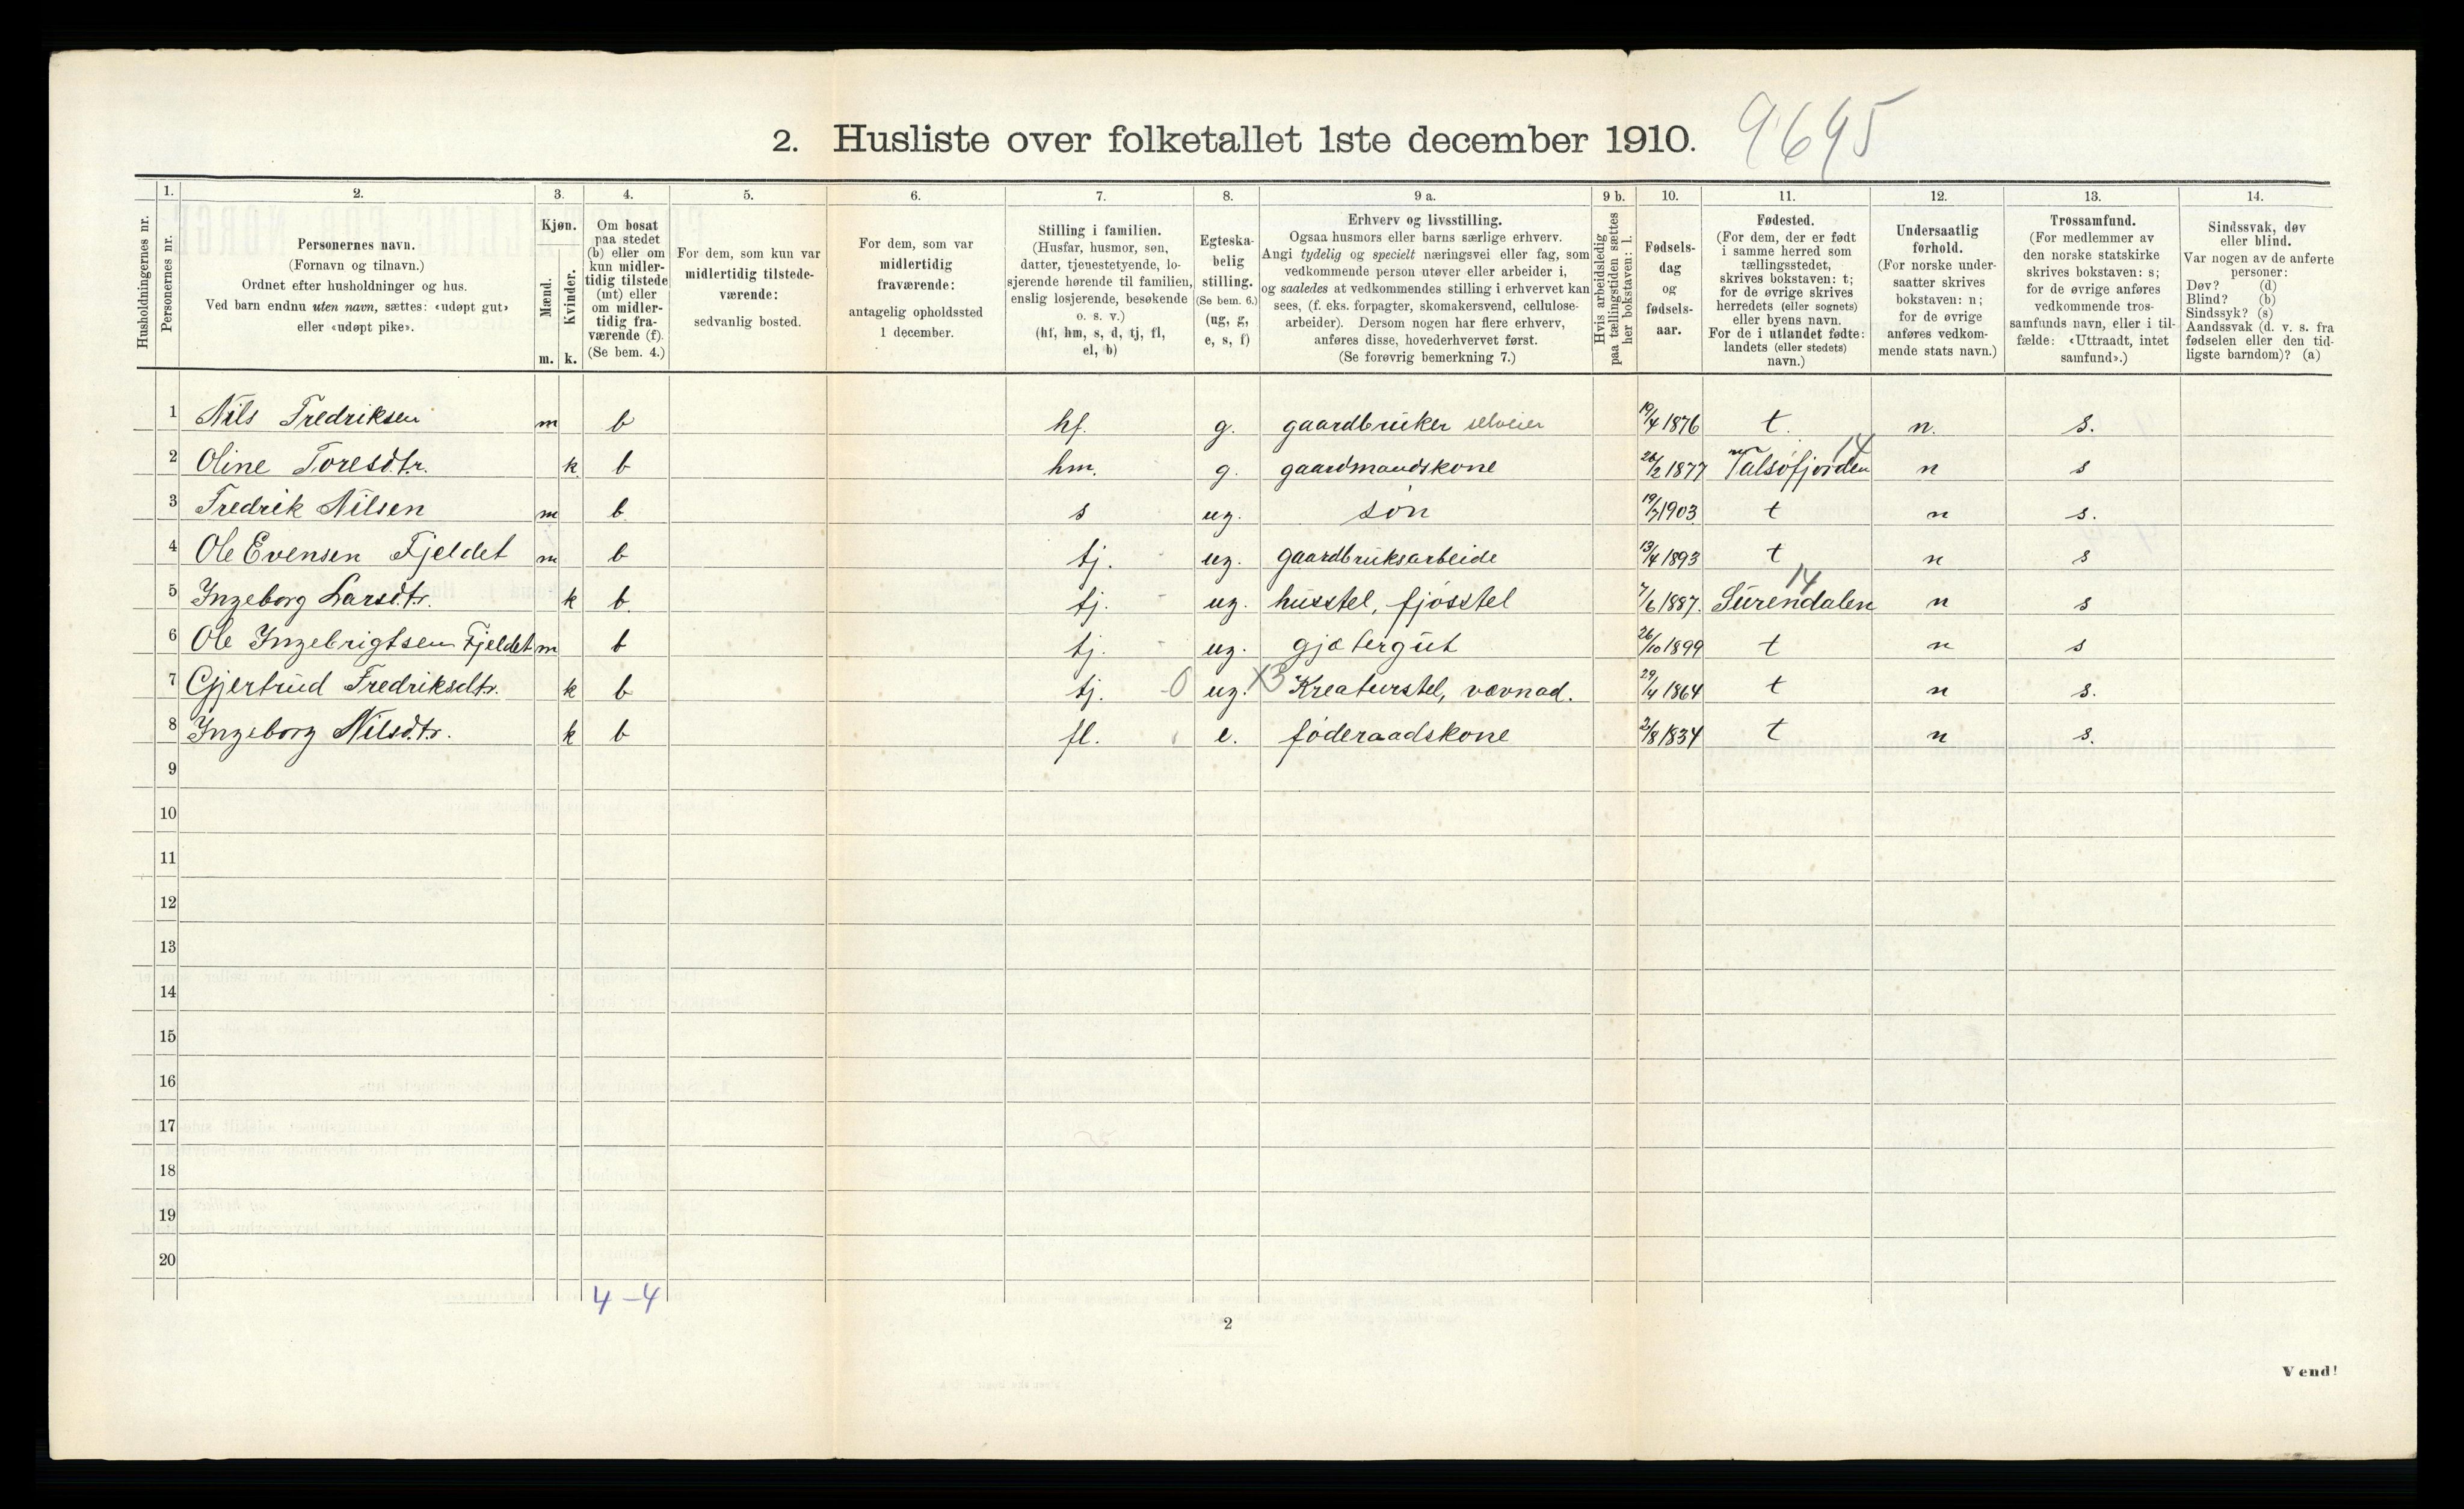 2. Husliste over folketallet 1ste december 1910. 9695
1. 2. 3. 4. 5. 6. 7. 8. 9 a. 9 b. 10. 11. 12. 13. 14.
Husholdningernes nr.
Personernes nr.
Personernes navn.
(Fornavn og tilnavn.)
Ordnet efter husholdninger og hus.
Ved barn endnu uten navn, sættes: «udøpt gut»
eller «udøpt pike».
Kjøn.
Mænd.
Kvinder.
m. k.
Om bosat
paa stedet
(b) eller om
kun midler-
tidig tilstede
(mt) eller
om midler-
tidig fra-
værende (f).
(Se bem. 4.)
For dem, som kun var
midlertidig tilstede-
værende:
sedvanlig bosted.
For dem, som var
midlertidig
fraværende:
antagelig opholdssted
1 december.
Stilling i familien.
(Husfar, husmor, søn,
datter, tjenestetyende, lo-
sjerende hørende til familien,
enslig losjerende, besøkende
o. s. v.)
(hf, hm, s, d, tj, fl,
el, b)
Egteska-
belig
stilling.
(Se bem. 6.)
(ug, g,
e, s, f)
Erhverv og livsstilling.
Ogsaa husmors eller barns særlige erhverv.
Angi tydelig og specielt næringsvei eller fag, som
vedkommende person utøver eller arbeider i,
og saaledes at vedkommendes stilling i erhvervet kan
sees, (f. eks. forpagter, skomakersvend, cellulose-
arbeider). Dersom nogen har flere erhverv,
anføres disse, hovederhvervet først.
(Se forøvrig bemerkning 7.)
Hvis arbeidsledig
paa tællingstiden sættes
her bokstaven: l.
Fødsels-
dag
og
fødsels-
aar.
Fødested.
(For dem, der er født
i samme herred som
tællingsstedet,
skrives bokstaven: t;
for de øvrige skrives
herredets (eller sognets)
eller byens navn.
For de i utlandet fødte:
landets (eller stedets)
navn.)
Undersaatlig
forhold.
(For norske under-
saatter skrives
bokstaven: n;
for de øvrige
anføres vedkom-
mende stats navn.)
Trossamfund.
(For medlemmer av
den norske statskirke
skrives bokstaven: s;
for de øvrige anføres
vedkommende tros-
samfunds navn, eller i til-
fælde: «Uttraadt, intet
samfund».)
Sindssvak, døv
eller blind.
Var nogen av de anførte
personer:
Døv? (d)
Blind? (b)
Sindssyk? (s)
Aandssvak (d. v. s. fra
fødselen eller den tid-
ligste barndom)? (a)
1 Nils Fredriksen m b hf. g. gaardbruker selveier 19/4 1876 t. n. s.
2 Oline Toresdtr. k b hm. g. gaardmandskone 26/2 1877 Valsøfjorden 14 n s
3 Fredrik Nilsen m b s ug. søn 19/7 1903 t n s.
4 Ole Evensen Fjeldet m b tj. ug. gaardbruksarbeide 13/4 1893 t n s
5 Ingeborg Larsdtr. k b. tj. ug. husstel, fjøsstel 7/6 1887. Surendalen 14 n s
6 Ole Ingebrigtsen Fjeldet m b tj. ug. gjætergut 26/10 1899 t n s
7 Gjertrud Fredriksdtr. k b tj. 0 ug. X3 Kreaturstel, vævnad. 29/4 1864 t n s.
8 Ingeborg Nilsdtr. k b fl. e. føderaadskone 2/8 1834 t n s.
9
10
11
12
13
14
15
16
17
18
19
20
4-4
2
Vend!